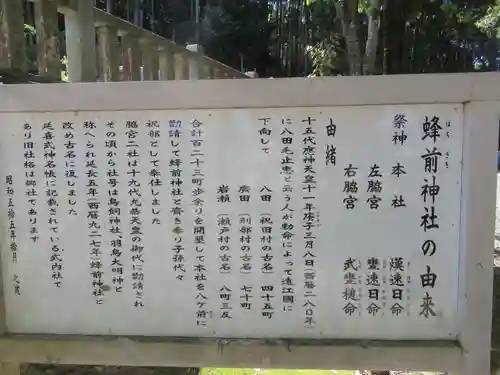 はち　さき
蜂前神社の由来
祭神　本社　熯速日命
左脇宮　甕速日命
右脇宮　武甕槌命
由緒
十五代應神天皇十一年庚子二月八日（西暦二八〇年）
に八田毛止恵と云う人が勅命によって遠江國に
下向して　八田（祝田村の古名）四十五町
廣田（刑部村の古名）七十町
岩瀬（瀬戸村の古名）八町三反
合計百二十三町歩余りを開墾して本社を八ヶ前に
勸請して蜂前神社と斎き奉り子孫代々
祝部として奉仕しました
脇宮二社は十九代允恭天皇の御代に勸請され
その頃から社号は鳥飼神社、羽鳥大明神と
称へられ延長五年（西暦九二七年）蜂前神社と
改め古名に復しました
延喜式神名帳に記載されている式内社で
あり旧社格は郷社であります
昭和五拾五年拾月